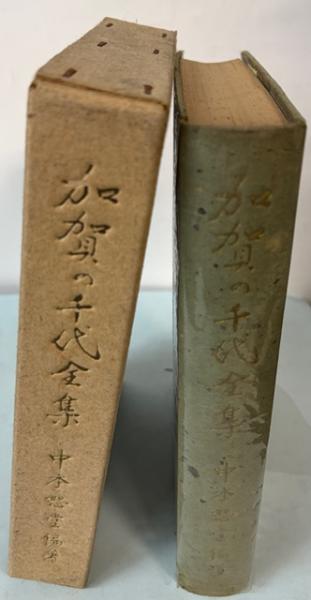 加賀の千代全集
中本恕堂編著
加賀の千代全集
中本恕堂編著